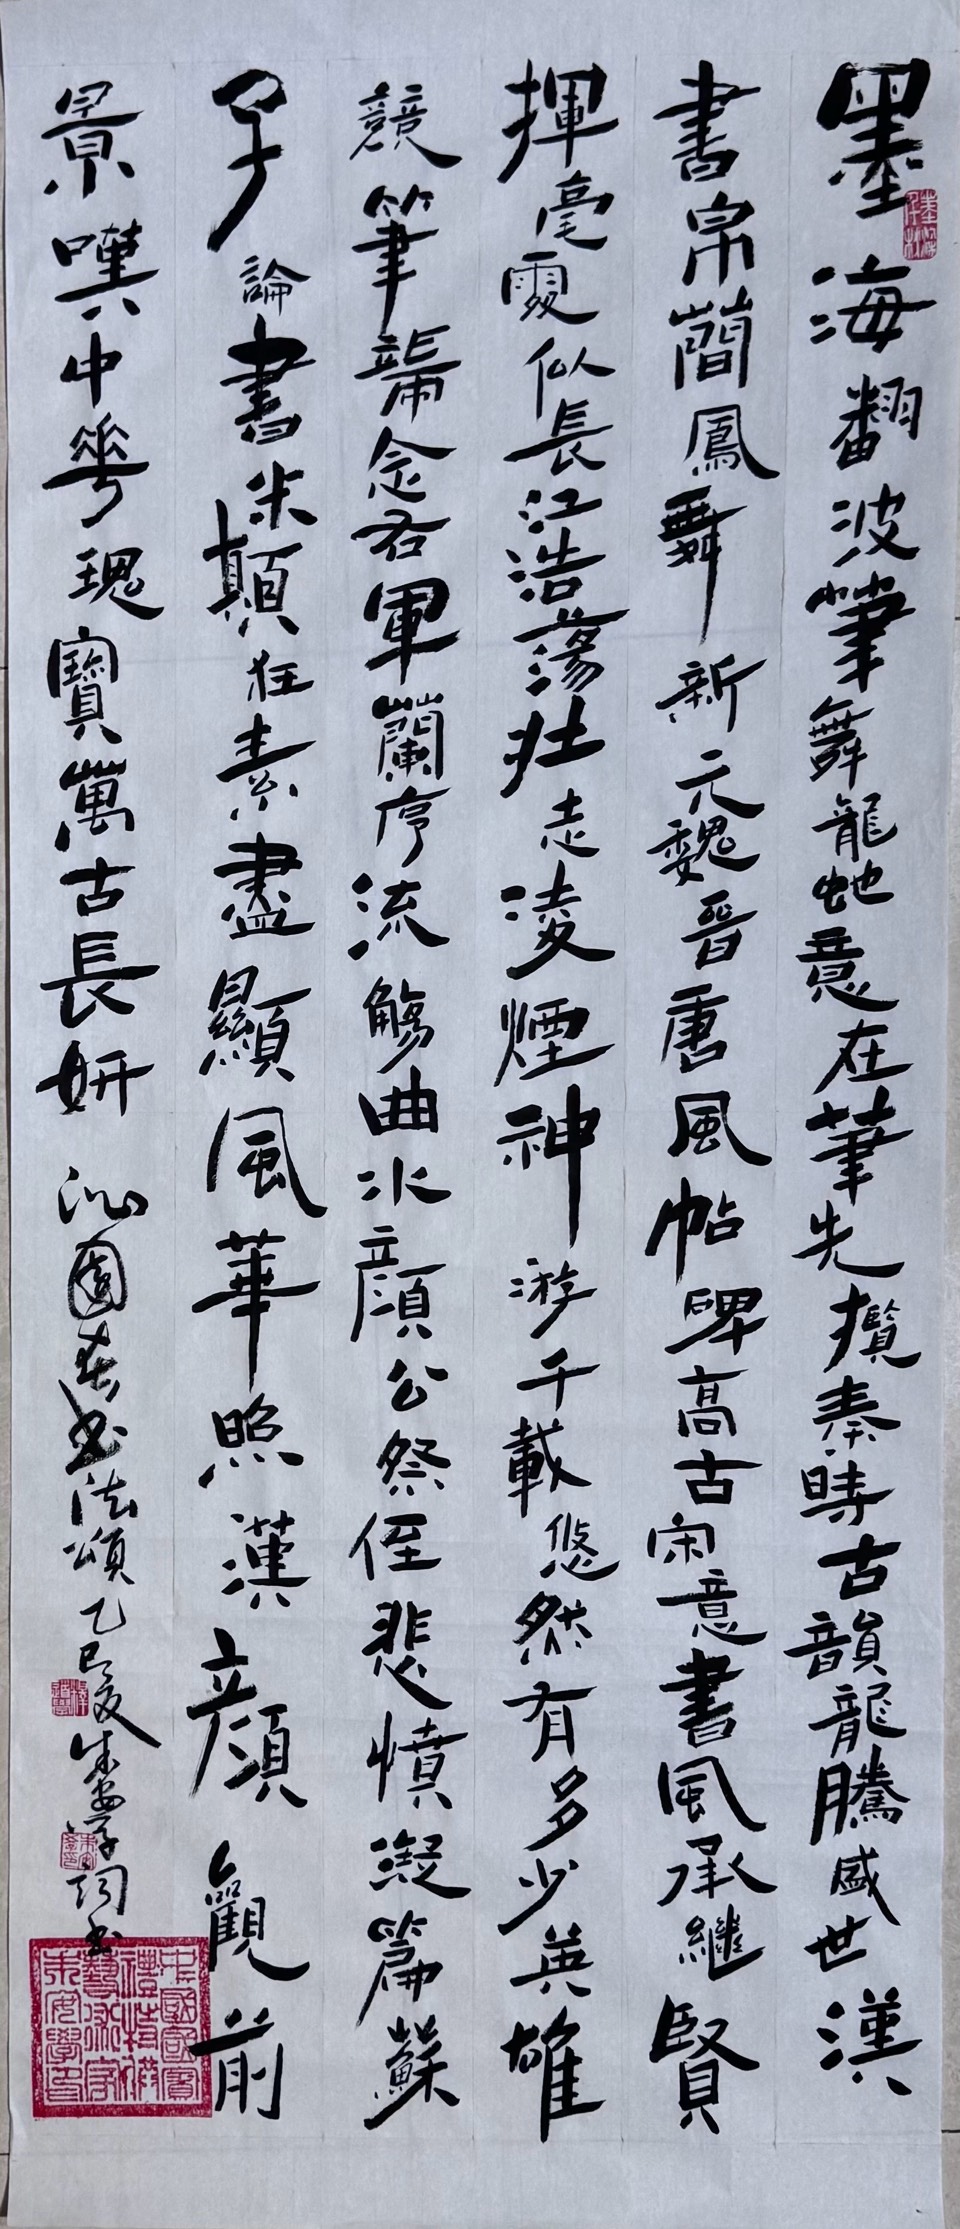 墨海翻波筆舞龍虵意在筆先攬秦時古韻龍騰盛世漢
書帛蘭鳳舞新元魏晉唐風帖碑高古宋意書風承繼賢
揮毫處似長江浩蕩壯志凌煙神游千載悠然有多少英雄
競筆端念右軍蘭亭流觴曲水顏公祭侄悲憤凝篇蘇
子論書米顛狂素盡顯風華照漢顏觀前
景嘆中華瑰寶萬古長妍沁園春書法頌乙巳夏朱安學詞書